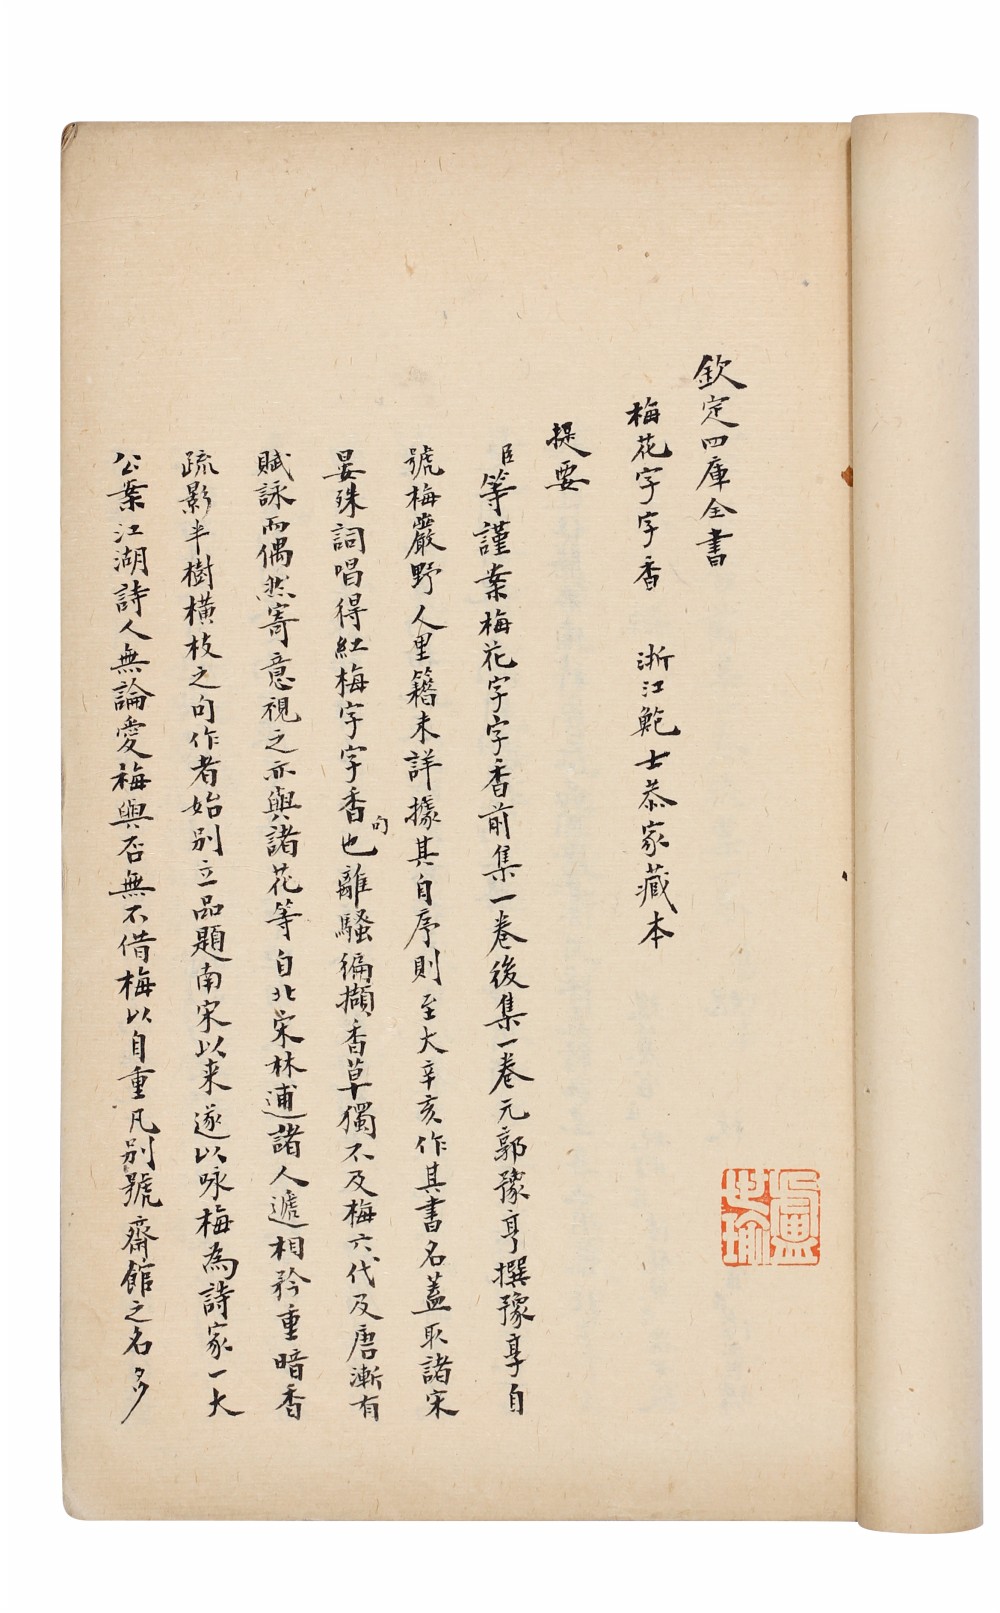 欽定四庫全書
梅花字字香 浙江鮑士恭家藏本
提要
臣等謹案梅花字字香前集一卷後集一卷元郭豫亨撰豫亨自
號梅巖野人里籍未詳據其自序則至大辛亥作其書名蓋取諸宋
晏殊詞唱得紅梅字字香句也離騷徧擷香草獨不及梅六代及唐漸有
賦詠而偶然寄意視之亦與諸花等自北宋林逋諸人遞相矜重暗香
疏影半樹橫枝之句作者始別立品題南宋以来遂以咏梅為詩家一大
公案江湖詩人無論愛梅與否無不借梅以自重凡別號齋館之名多
盧世瑜